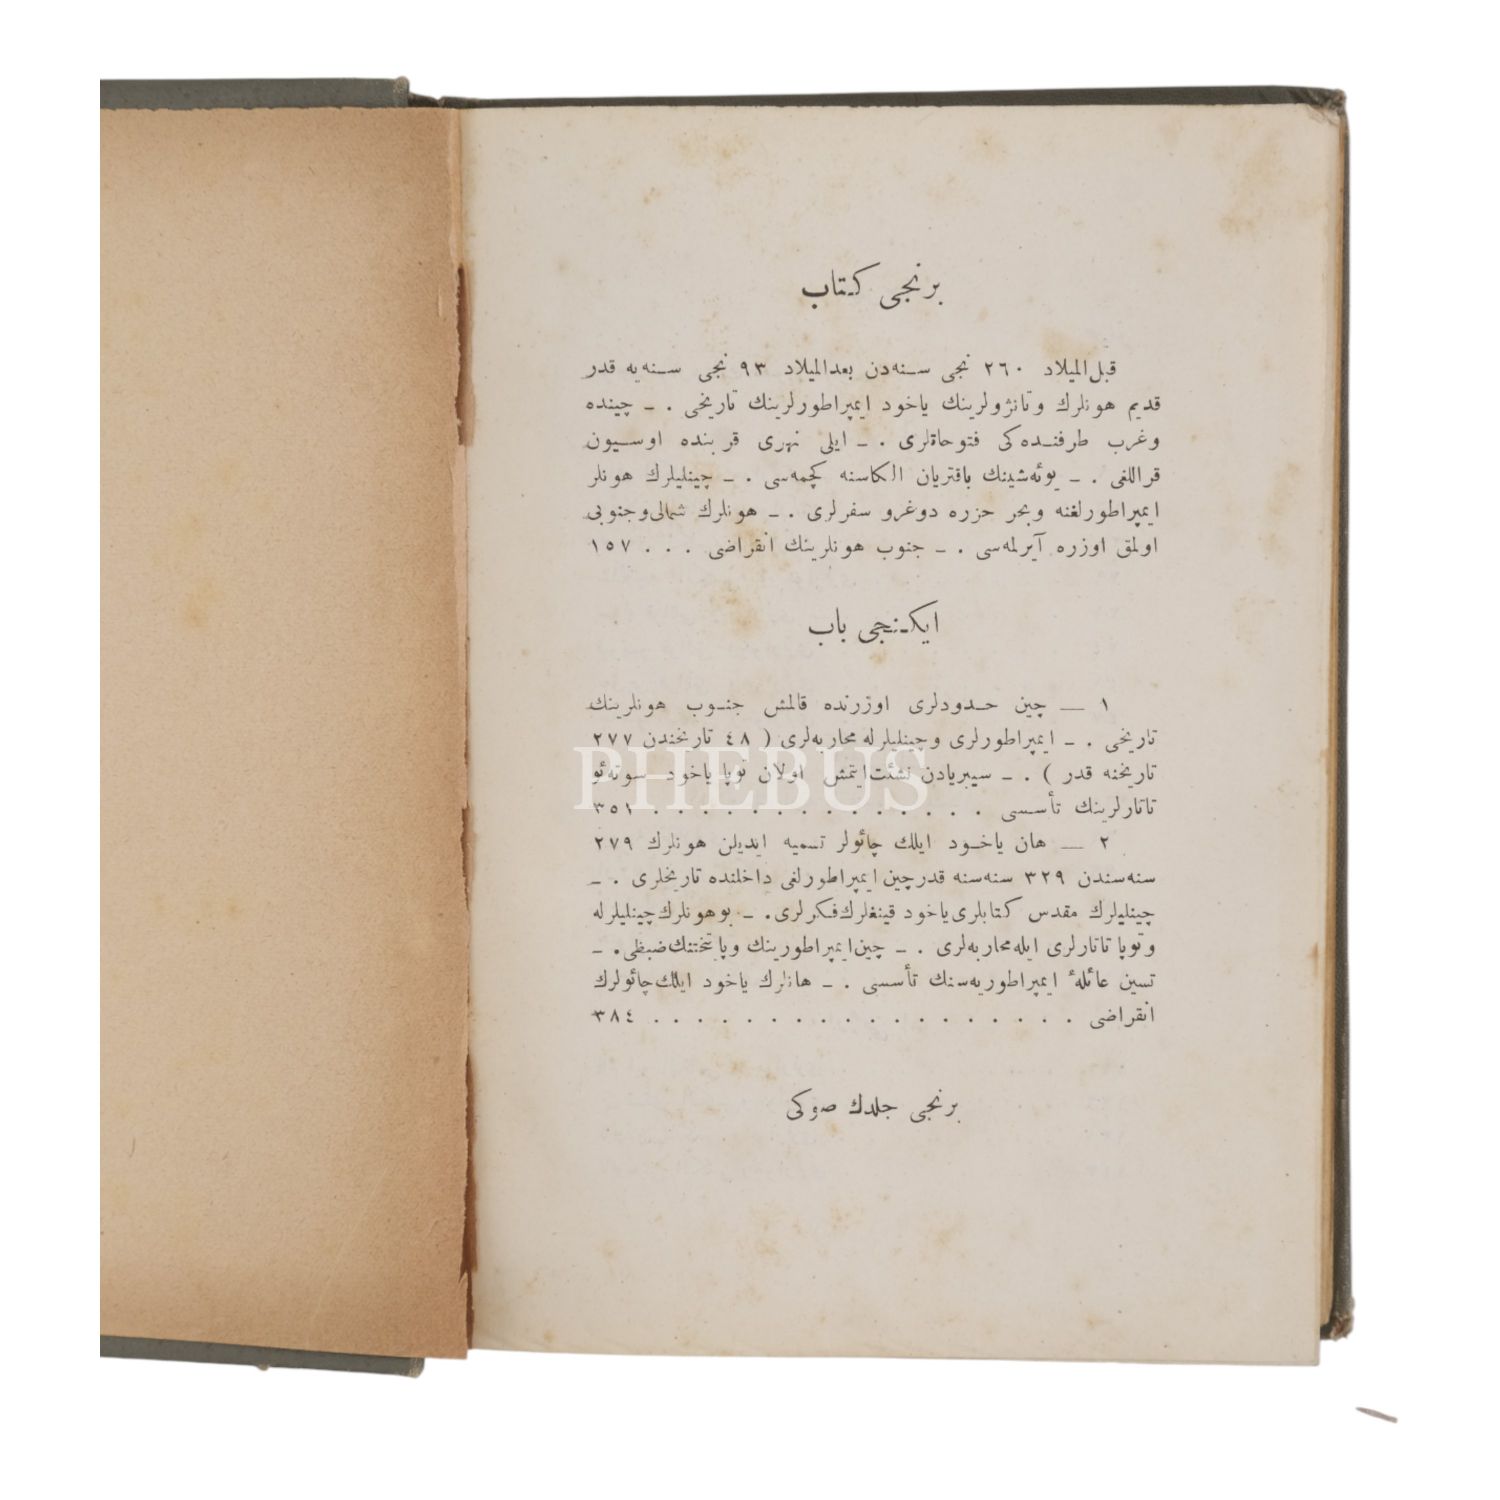 برنجی كتاب
قبل‌المیلاد ٢٦٠ نجی سنه‌دن بعدالمیلاد ٩٣ نجی سنه‌یه قدر
قدیم هونلرك وتانژولرینك یاخود ایمپراطورلرینك تاریخی . ـ چینده
وغرب طرفنده‌كی فتوحاتلری . ـ ایلی نهری قربنده اوسیون
قراللغی . ـ یوئه‌شینك باقتریان الكاسنه كچمه‌سی . ـ چینلیلرك هونلر
ایمپراطورلغنه وبحر حزره دوغرو سفرلری . ـ هونلرك شمالی‌وجنوبی
اولمق اوزره آیرلمه‌سی . ـ جنوب هونلرینك انقراضی . . . ١٥٧
ایكنجی باب
١ — چین حدودلری اوزرنده قالمش جنوب هونلرینك
تاریخی . ـ ایمپراطورلری وچینلیلرله محاربه‌لری ( ٤٨ تاریخندن ٢٧٧
تاریخنه قدر ) . ـ سیبریادن نشئت‌ایتمش اولان توپا یاخود سوته‌ئو
تاتارلرینك تأسسی . . . . . . . . . . . . . . ٣٥١
٢ — هان یاخود ایلك چائولر تسمیه ایدیلن هونلرك ٢٧٩
سنه‌سندن ٣٢٩ سنه‌سنه قدرچین‌ایمپراطورلغی داخلنده تاریخلری . ـ
چینلیلرك مقدس كتابلری‌یاخود قینغلرك‌فكرلری. ـ بوهونلرك‌چینلیلرله
وتوپا تاتارلری ایله‌محاربه‌لری . ـ چین‌ایمپراطورینك وپایتختنك‌ضبطی. ـ
تسین عائلهٔ ایمپراطوریه‌سنك تأسسی . ـ هانلرك یاخود ایلك‌چائولرك
انقراضی . . . . . . . . . . . . . . . . . ٣٨٤
برنجی جلدك صوكی
PHEBUS